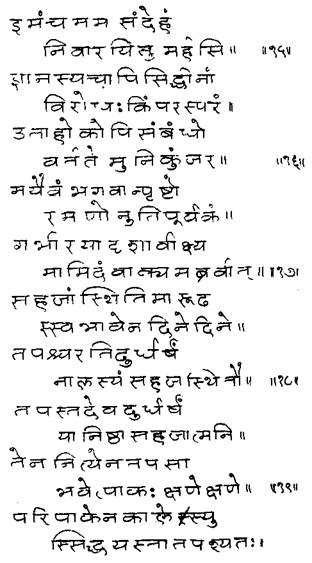 इमंच मम संदेहं
निवारयितुमर्हसि॥ ॥१५॥
ज्ञानस्यचापिसिद्धीनां
विरोधःकिंपरस्परं॥
उताहोकोपिसंबंधो
वर्तते मुनिकुंजर॥ ॥१६॥
मयैवंभगवान्पृष्टो
रमणोनुतिपूर्वकं॥
गभीरयादृशावीक्ष्य
मामिदंवाक्यमब्रवीत्॥॥१७॥
सहजांस्थितिमारूढ
स्स्वभावेनदिनेदिने॥
तपश्चरतिदुर्धर्षं
नालस्यंसहजस्थितौ॥ ॥१८॥
तपस्तदेवदुर्धर्षं
यानिष्ठासहजात्मनि॥
तेननित्येनतपसा
भवेत्पाकःक्षणेक्षणे॥ ॥१९॥
परिपाकेनकालेस्यु
स्सिद्धयस्तातपश्यतः।